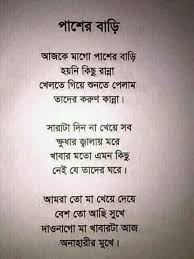 পাশের বাড়ি
আজকে মাগো পাশের বাড়ি
হয়নি কিছু রান্না
খেলতে গিয়ে শুনতে পেলাম
তাদের করুণ কান্না।
সারাটা দিন না খেয়ে সব
ক্ষুধার জ্বালায় মরে
খাবার মতো এমন কিছু
নেই যে তাদের ঘরে।
আমরা তো মা খেয়ে দেয়ে
বেশ তো আছি সুখে
দাওনাগো মা খাবারটা আজ
অনাহারীর মুখে।